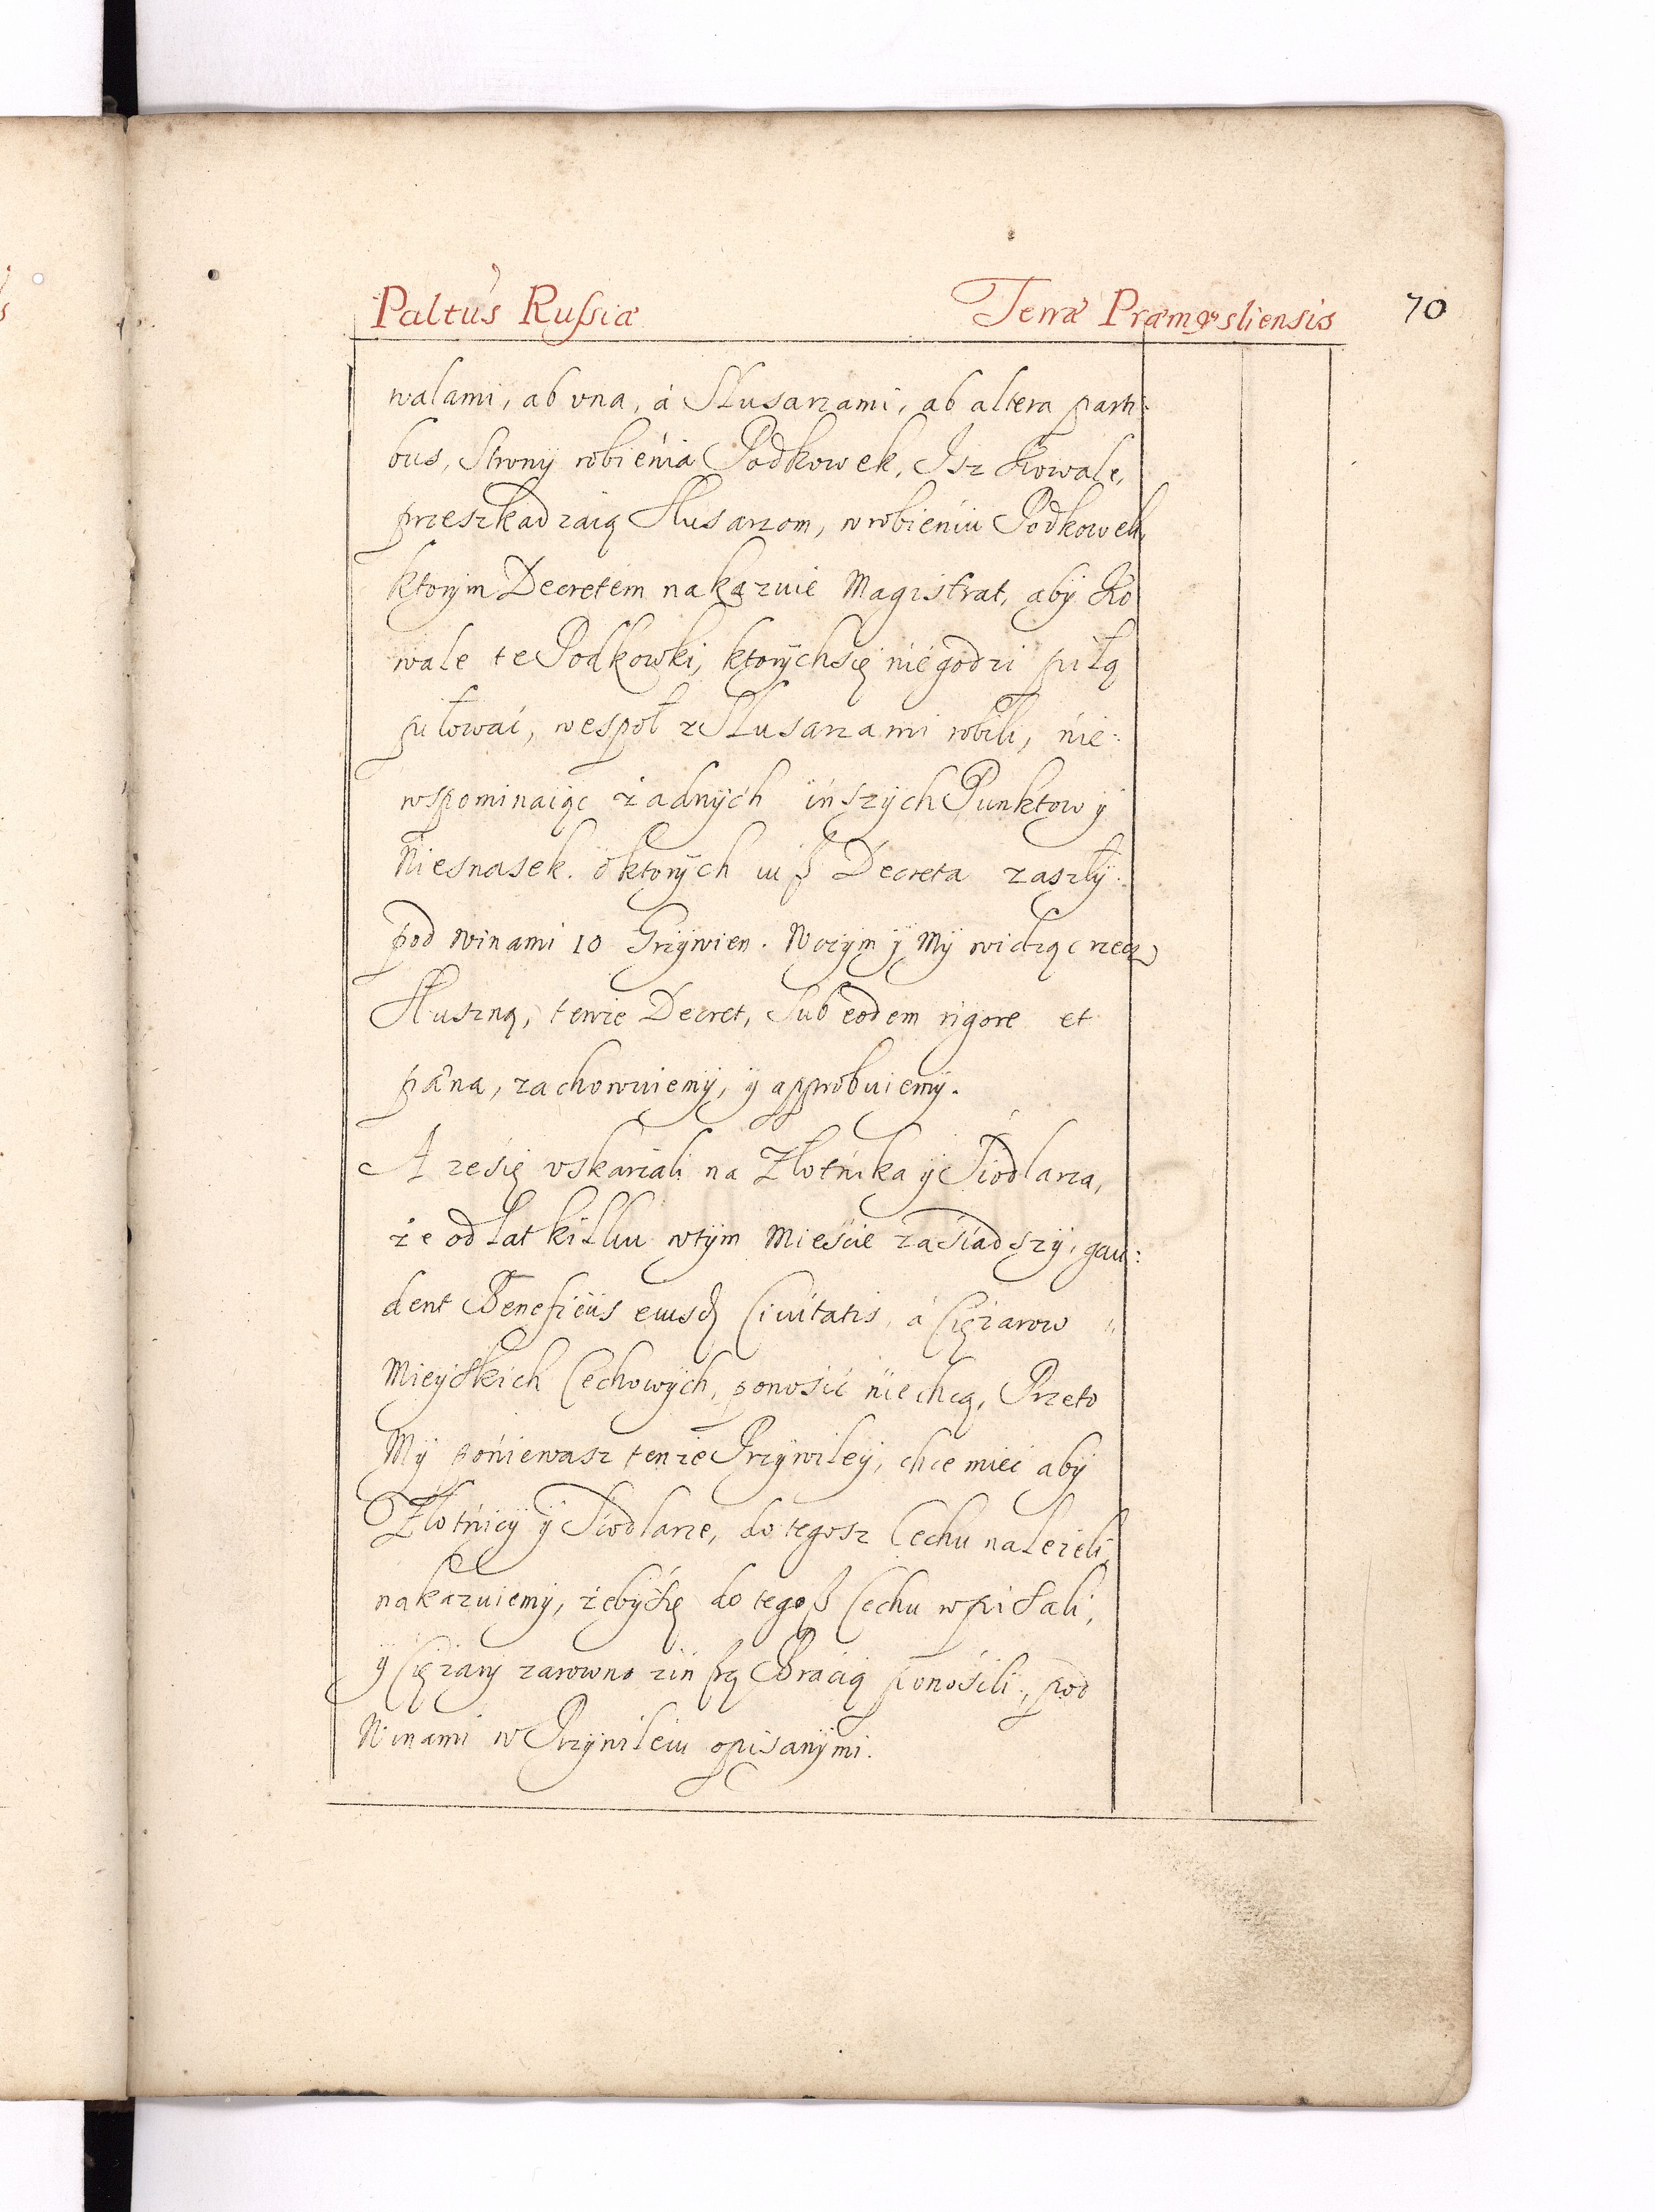 Paltus Rußiæ Terræ Præmysliensis 70
walami, ab vna, á Slusarzami, ab altera parti:
bus, Strony robienia Podkowek, Isz Kowale,
przeszkadzaią Slusarzom, w robieniu Podkowek,
ktorym Decretem nakazuie Magistrat, aby Ko
wale te Podkowki, ktorych się nie godzi piłą
piłować, wespoł z Slusarzami robili, nie:
wspominaiąc żadnych inszych Punktow y
Niesnasek. o ktorych iuß Decreta zaszły.
pod winami 10 Grzywien. W czym y My widząc rzecz
Słuszną, tenże Decret, sub eodem rigore et
pæna, zachowuiemy, y approbuiemy.
A ze się vskarżali na Złotnika y Siodlarza,
że od lat kilku w tym Mieście zasiadszy, gau:
dent Beneficiis eiusd Ciuitatis, á Ciężarow
Mieyskich Cechowych, ponosić niechcą, Przeto
My poniewasz tenże Przywiley, chce mieć aby
Złotnicy y Siodlarze, do tegosz Cechu należeli,
nakazuiemy, żeby się do tegoß Cechu wpisali,
y Ciężary zarowno z inßą Bracią ponosili, pod
Winami w Przywileiu opisanymi.